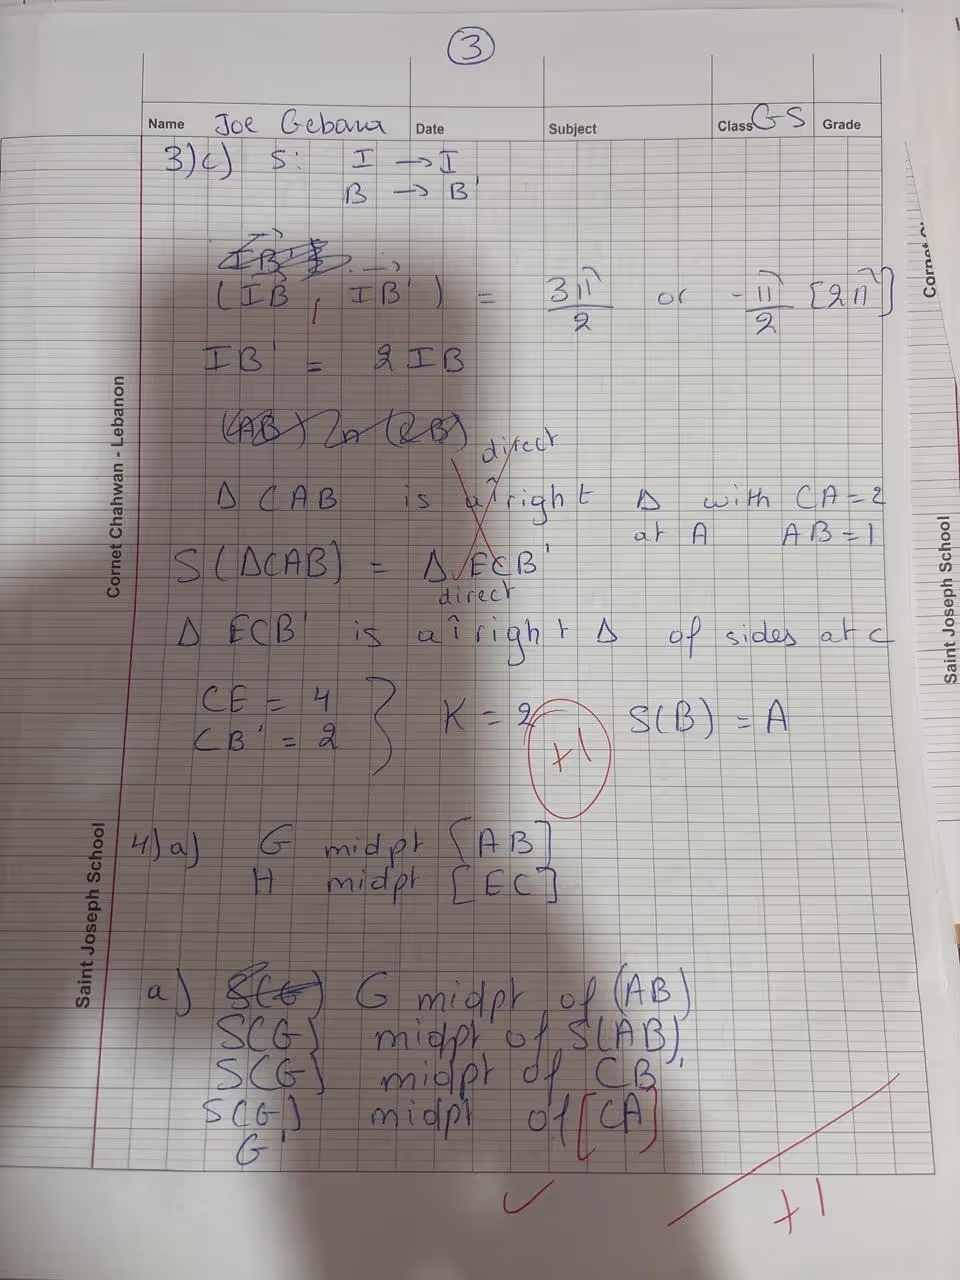 3
Name Joe Gebara Date Subject Class GS Grade
3) c) S: I → I
B → B'
(IB, IB') = 3π/2 or -π/2 [2π]
IB' = 2 IB
(AB)
direct
Δ CAB is a right Δ with CA = 2
at A AB = 1
S(ΔCAB) = Δ ECB'
direct
Δ ECB' is a right Δ of sides at C
CE = 4
CB' = 2
K = 2 S(B) = A
+1
4) a) G midpt [AB]
H midpt [EC]
a) S(G) G midpt of (AB)
S(G) midpt of S(AB)
S(G) midpt of CB'
S(G) midpt of [CA]
G'
+1
Cornet Chahwan - Lebanon
Saint Joseph School
Saint Joseph School